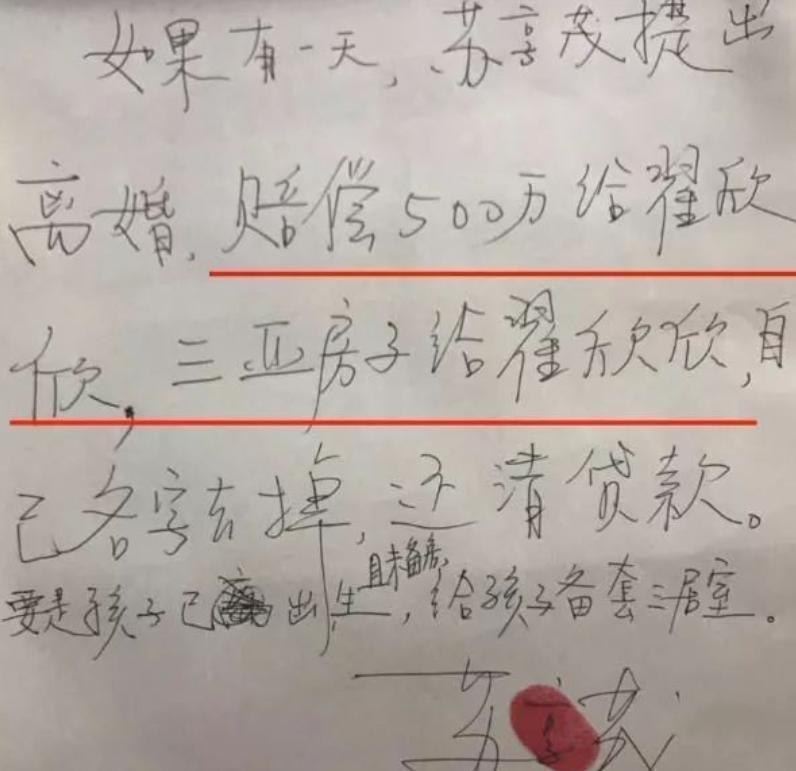 如果有一天,苏享茂提出
离婚,赔偿500万给翟欣
欣,三亚房子给翟欣欣,自
己名字去掉,还清贷款。
且未备房,
要是孩子已出生,给孩子备套三居室。
苏享茂